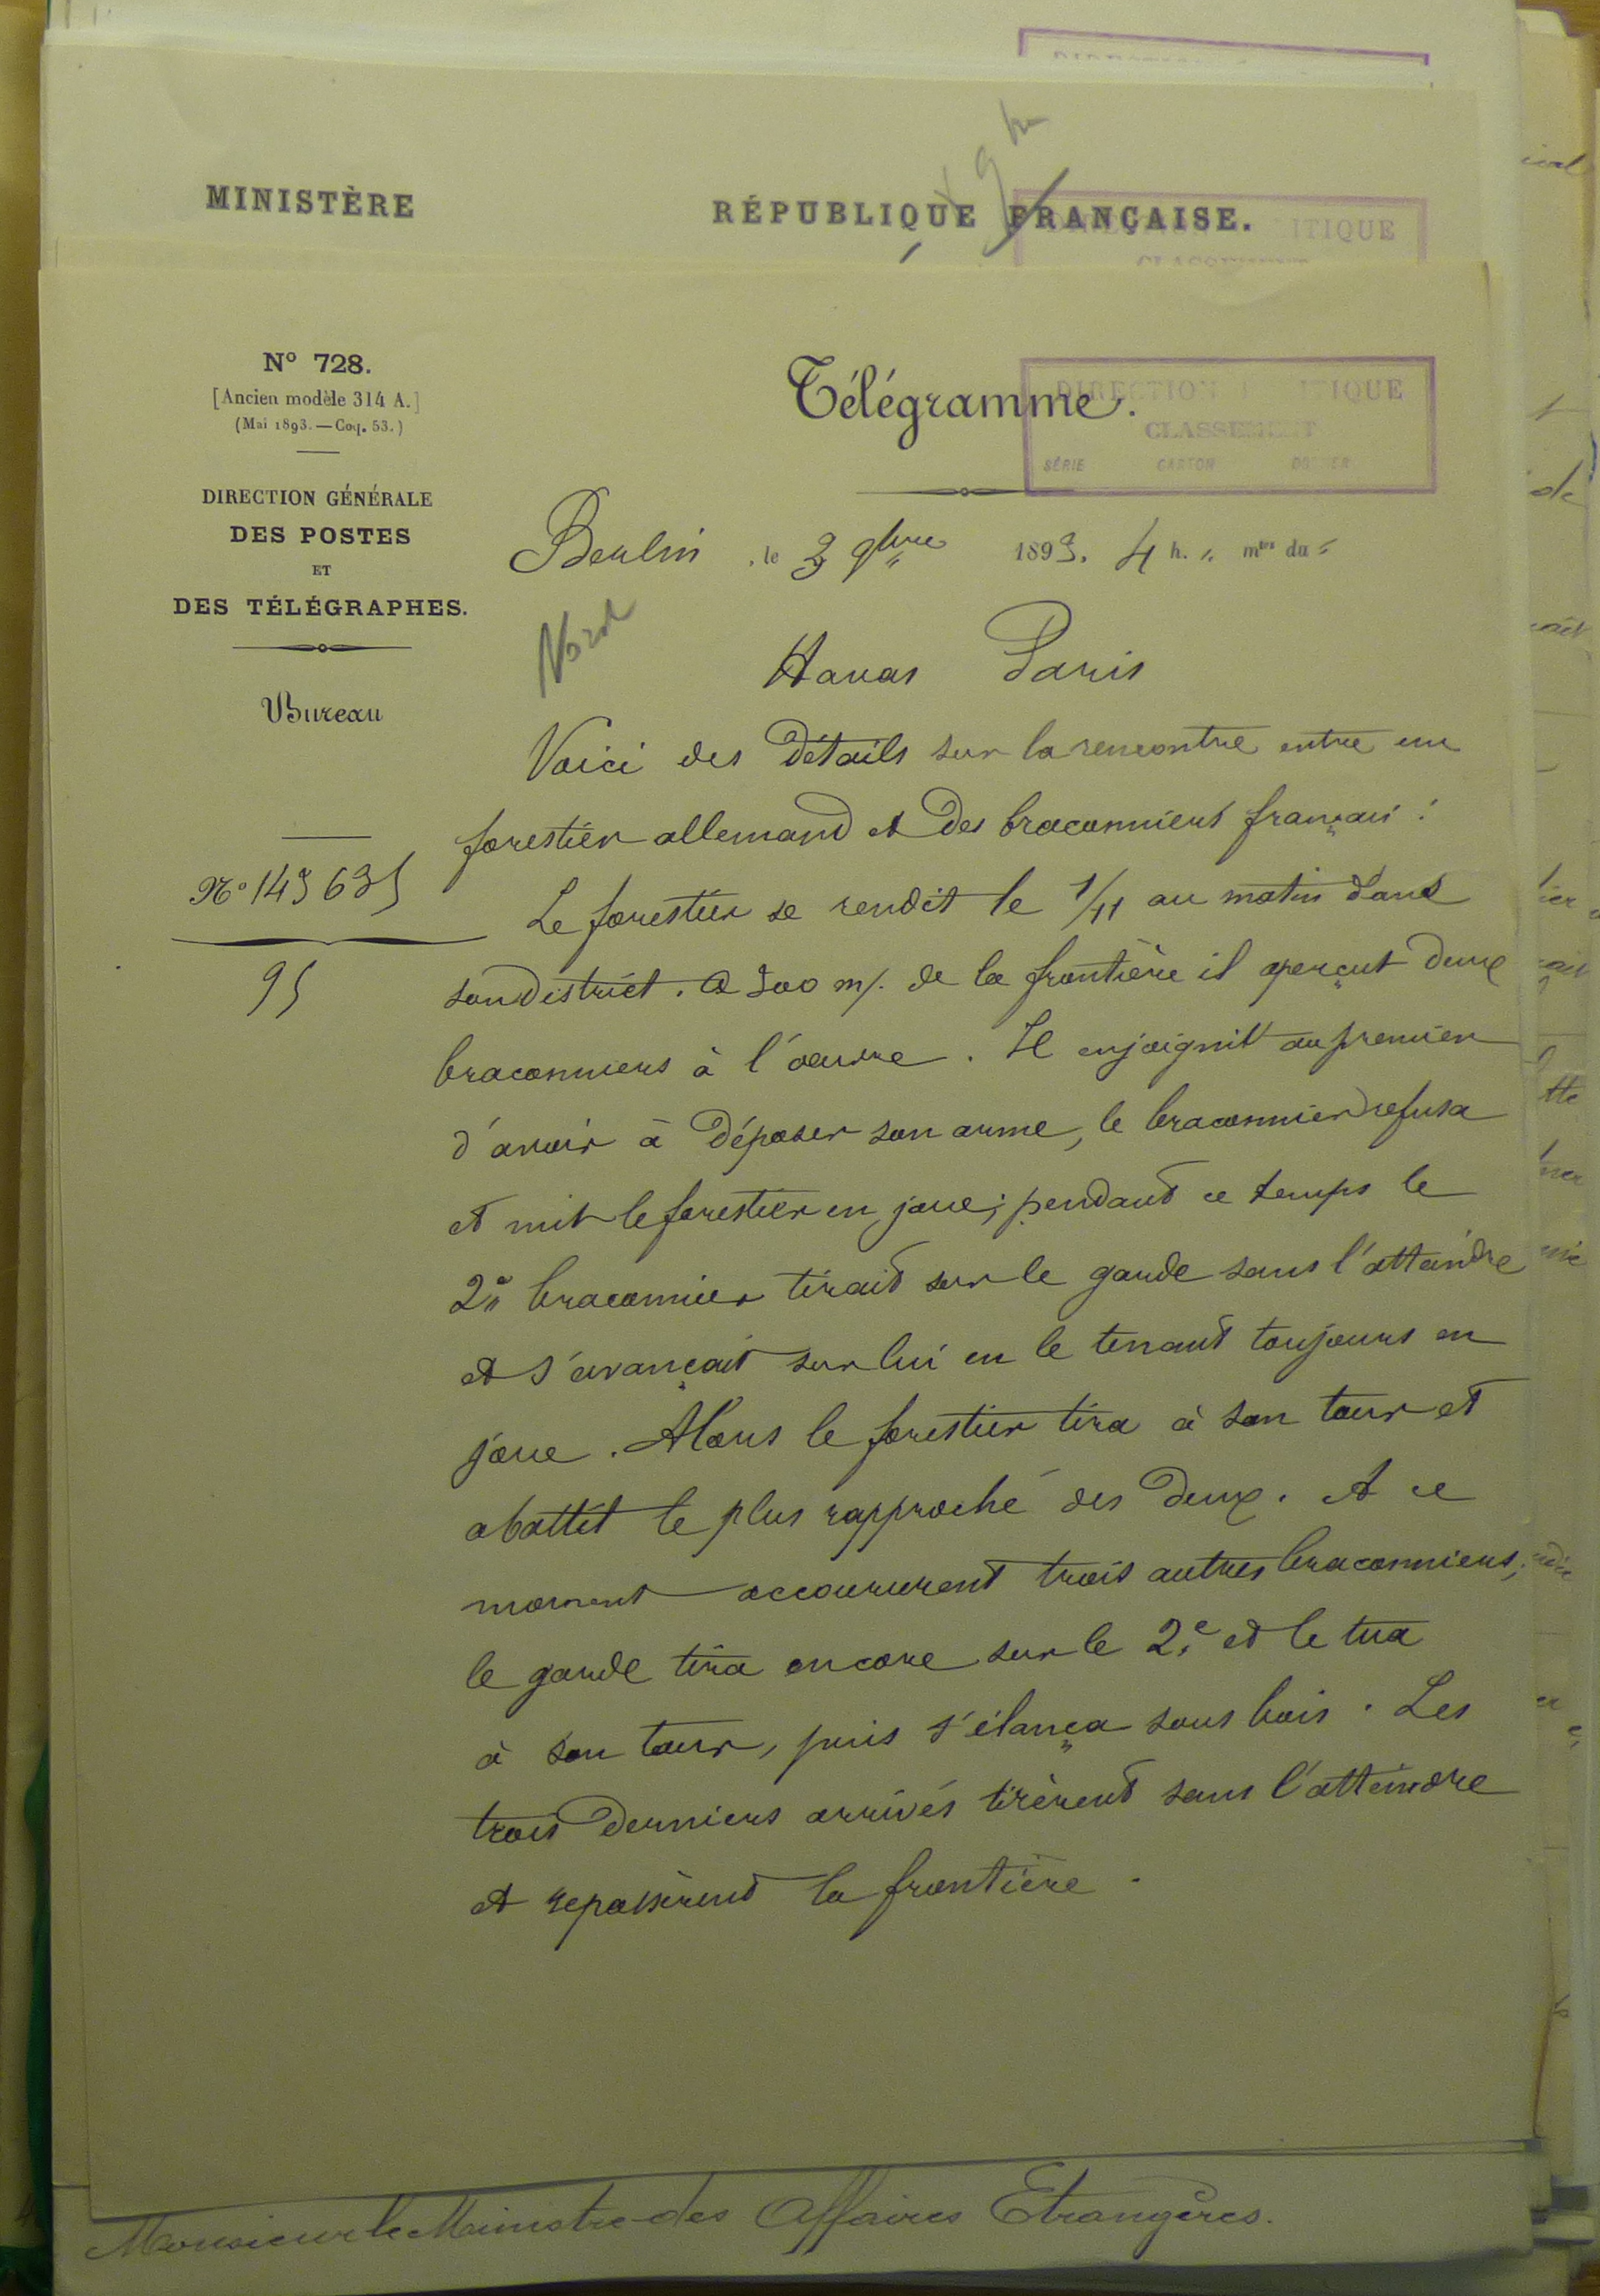 MINISTÈRE
RÉPUBLIQUE FRANÇAISE.
ITIQUE
Nº 728.
[Ancien modèle 314 A.]
(Mai 1893. — Coq. 53.)
DIRECTION GÉNÉRALE
DES POSTES
ET
DES TÉLÉGRAPHES.
Bureau
Nº 143 635
95
Télégramme.
DIRECTION ITIQUE
CLASSEMENT
SÉRIE CARTON DOSSIER
Berlin, le 3 9bre 1893. 4 h. mtes du
Nord
Havas Paris
Voici des détails sur la rencontre entre un
forestier allemand et des braconniers français :
Le forestier se rendit le 1/11 au matin dans
son district. A 300 m/. de la frontière il aperçut deux
braconniers à l'œuvre. Il enjoignit au premier
d'avoir à déposer son arme, le braconnier refusa
et mit le forestier en joue; pendant ce temps le
2e braconnier tirait sur le garde sans l'atteindre
et s'avançait sur lui en le tenant toujours en
joue. Alors le forestier tira à son tour et
abattit le plus rapproché des deux. A ce
moment accoururent trois autres braconniers;
le garde tira encore sur le 2e et le tua
à son tour, puis s'élança sous bois. Les
trois derniers arrivés tirèrent sans l'atteindre
et repassèrent la frontière.
Monsieur le Ministre des Affaires Etrangères.